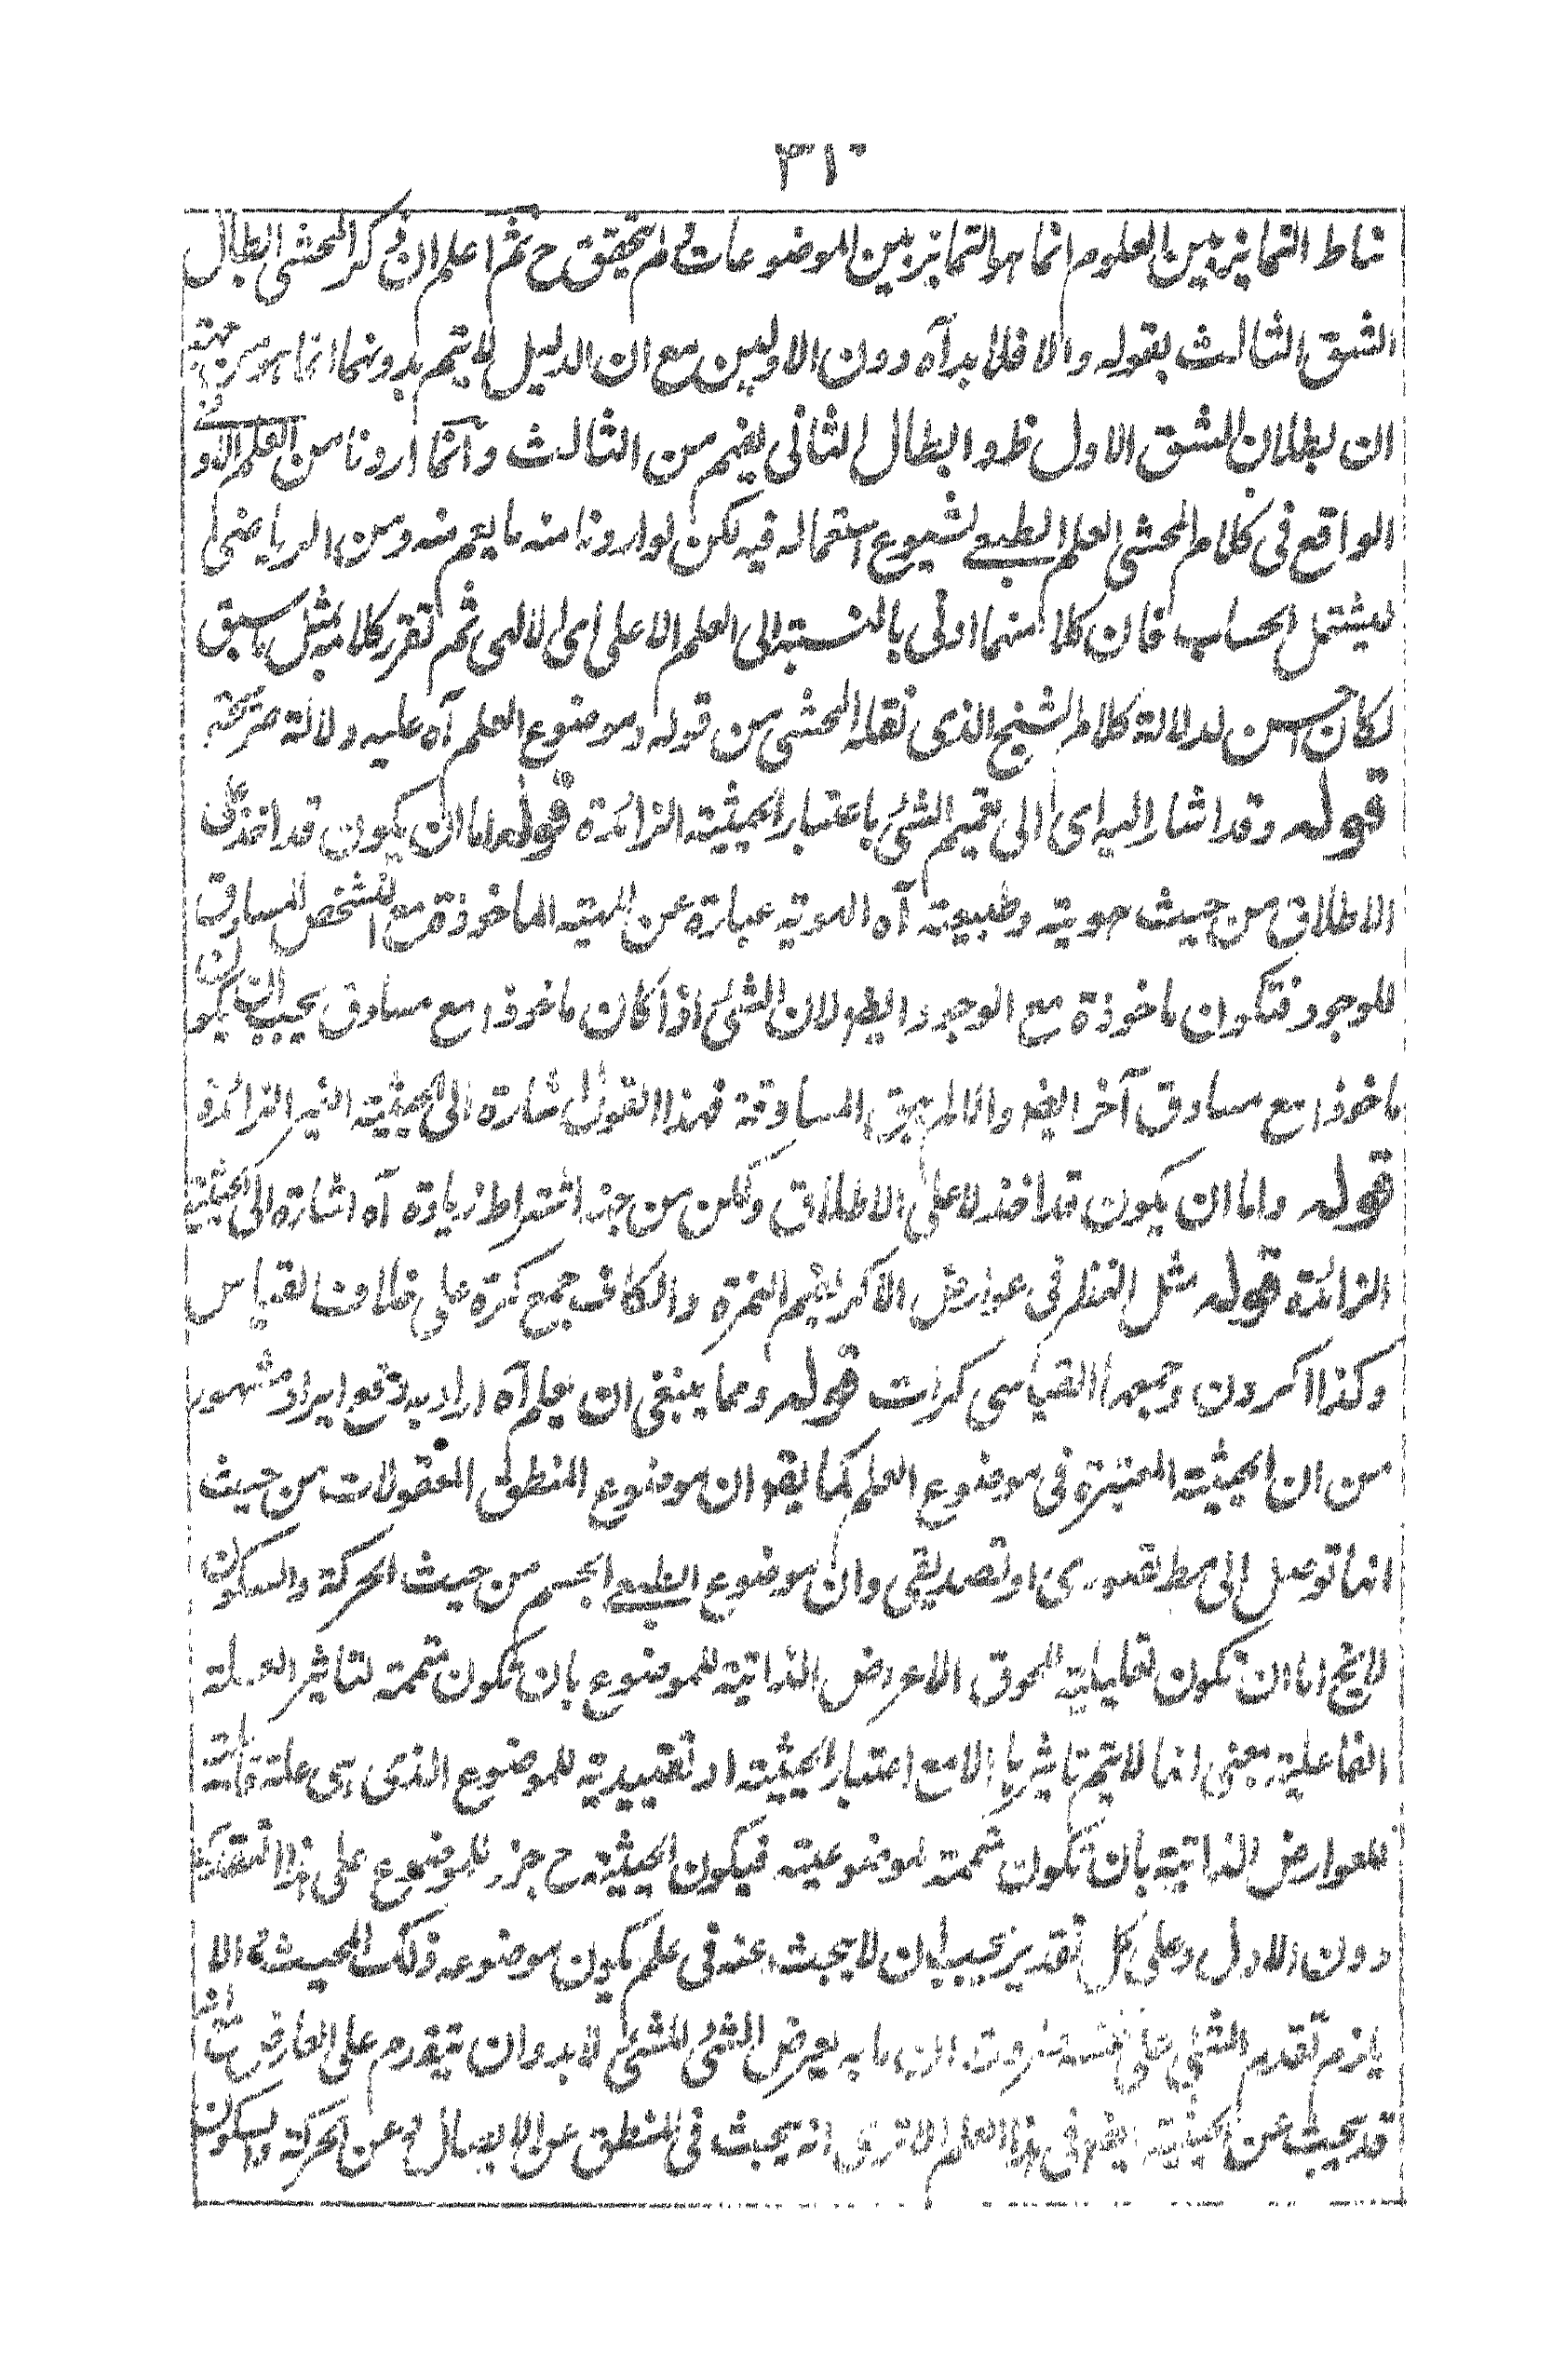 ٣١٠
ناط التمايز بين العلوم انما هو التمايز بين الموضوعات فلم يتحقق ح ثم اعلم ان ذكر المحشى ابطال
الشق الثالث بقوله والا فلا بد آه دون الاولين مع ان الدليل لا يتم بدونهما انما هو من جهة
ان بطلان الشق الاول ظ وابطال الثانى يفهم من الثالث وانما اردنا من العلم الادنى
الواقع فى كلام المحشى العلم الطبعى لشيوع استعماله فيه لكن لو اردنا منه ما يعم منه ومن الرياضى
ليشتمل الحساب فان كلا منهما ادنى بالنسبة الى العلم الاعلى اى الالهى ثم تقرر كلامه بمثل ما سبق
لكان احسن لدلالة كلام الشيخ الذى نقله المحشى من قوله وموضوع العلم آه عليه دلالة صريحة
قوله وقد اشار اليه اى الى تعميم الشئ باعتبار الحيثية الزائدة قوله اما ان يكون قد اخذ على
الاطلاق من حيث هويته وطبيعته آه الهوية عبارة عن المهية الماخوذة مع التشخص المساوق
للوجود فتكون ماخوذة مع الوجود ايضا لان الشئ اذا كان ماخوذا مع مساوق يجب ان يكون
ماخوذا مع مساوق آخر ايضا والا لم يبق المساوقة فهذا القول اشارة الى الحيثية الغير الزائدة
قوله واما ان يكون قد اخذ لا على الاطلاق ولكن من جهة اشتراط زيادة آه اشارة الى الحيثية
الزائدة قوله مثل النظر فى عوارض الاكر بضم الهمزة والكاف جمع كرة على خلاف القياس
وكذا اكرون وجمعها القياسى كرات قوله ومما ينبغى ان يعلم آه اراد به دفع ايراد مشهور
من ان الحيثية المعتبرة فى موضوع العلم كما يقال ان موضوع المنطق المعقولات من حيث
انها توصل الى مط تصورى او تصديقى وان موضوع الطبعى الجسم من حيث الحركة والسكون
لا يخ اما ان تكون تعليلية للحوق الاعراض الذاتية للموضوع بان تكون متممة لتاثير العلة
الفاعلية بمعنى انها لا يتم تاثيرها الا مع اعتبار الحيثية او تقييدية للموضوع الذى هى علة قابلة
للعوارض الذاتية بان تكون متممة لموضوعيته فيكون الحيثية ح جزء للموضوع على هذا التقدير
دون الاول وعلى كل تقدير يجب ان لا يبحث عنه فى علم يكون موضوعه ذلك المحيث والا
يلزم تقدم الشئ على نفسه ضرورة ان ما به يعرض الشئ للشئ لا بد وان يتقدم على العارض مع انه
قد يبحث عن الحيثية ايضا فى هذا العلم الا ترى انه يبحث فى المنطق عن الايصال وعن الحركة والسكون